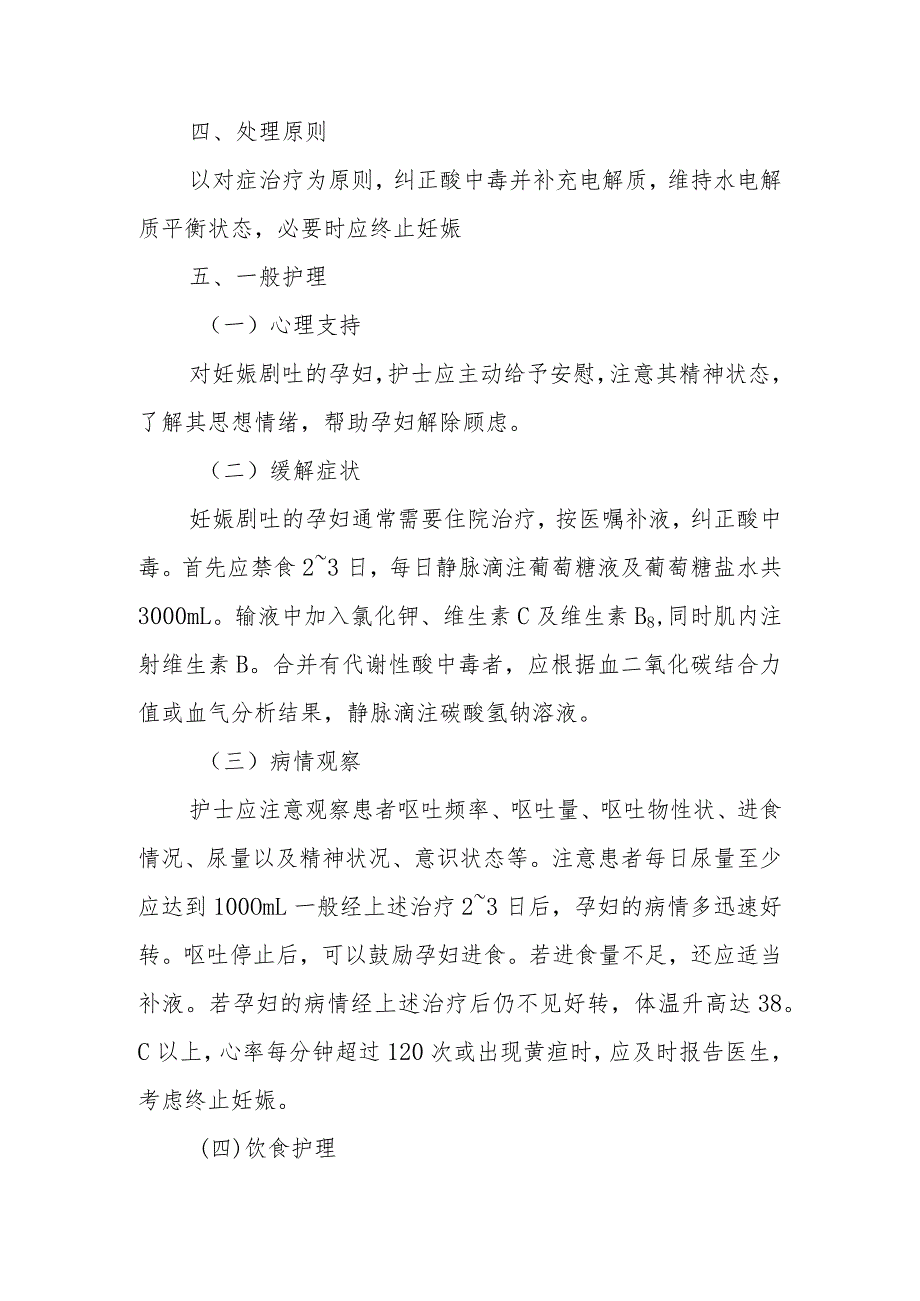 四、处理原则
以对症治疗为原则,纠正酸中毒并补充电解质,维持水电解
质平衡状态，必要时应终止妊娠
五、一般护理
（一）心理支持
对妊娠剧吐的孕妇,护士应主动给予安慰,注意其精神状态，
了解其思想情绪，帮助孕妇解除顾虑。
（二）缓解症状
妊娠剧吐的孕妇通常需要住院治疗，按医嘱补液，纠正酸中
毒。首先应禁食2~3日，每日静脉滴注葡萄糖液及葡萄糖盐水共
3000mL。输液中加入氯化钾、维生素C及维生素B₈,同时肌内注
射维生素B。合并有代谢性酸中毒者，应根据血二氧化碳结合力
值或血气分析结果，静脉滴注碳酸氢钠溶液。
（三）病情观察
护士应注意观察患者呕吐频率、呕吐量、呕吐物性状、进食
情况、尿量以及精神状况、意识状态等。注意患者每日尿量至少
应达到1000mL一般经上述治疗2~3日后，孕妇的病情多迅速好
转。呕吐停止后，可以鼓励孕妇进食。若进食量不足，还应适当
补液。若孕妇的病情经上述治疗后仍不见好转，体温升高达38。
C以上,心率每分钟超过120次或出现黄疸时,应及时报告医生，
考虑终止妊娠。
(四)饮食护理